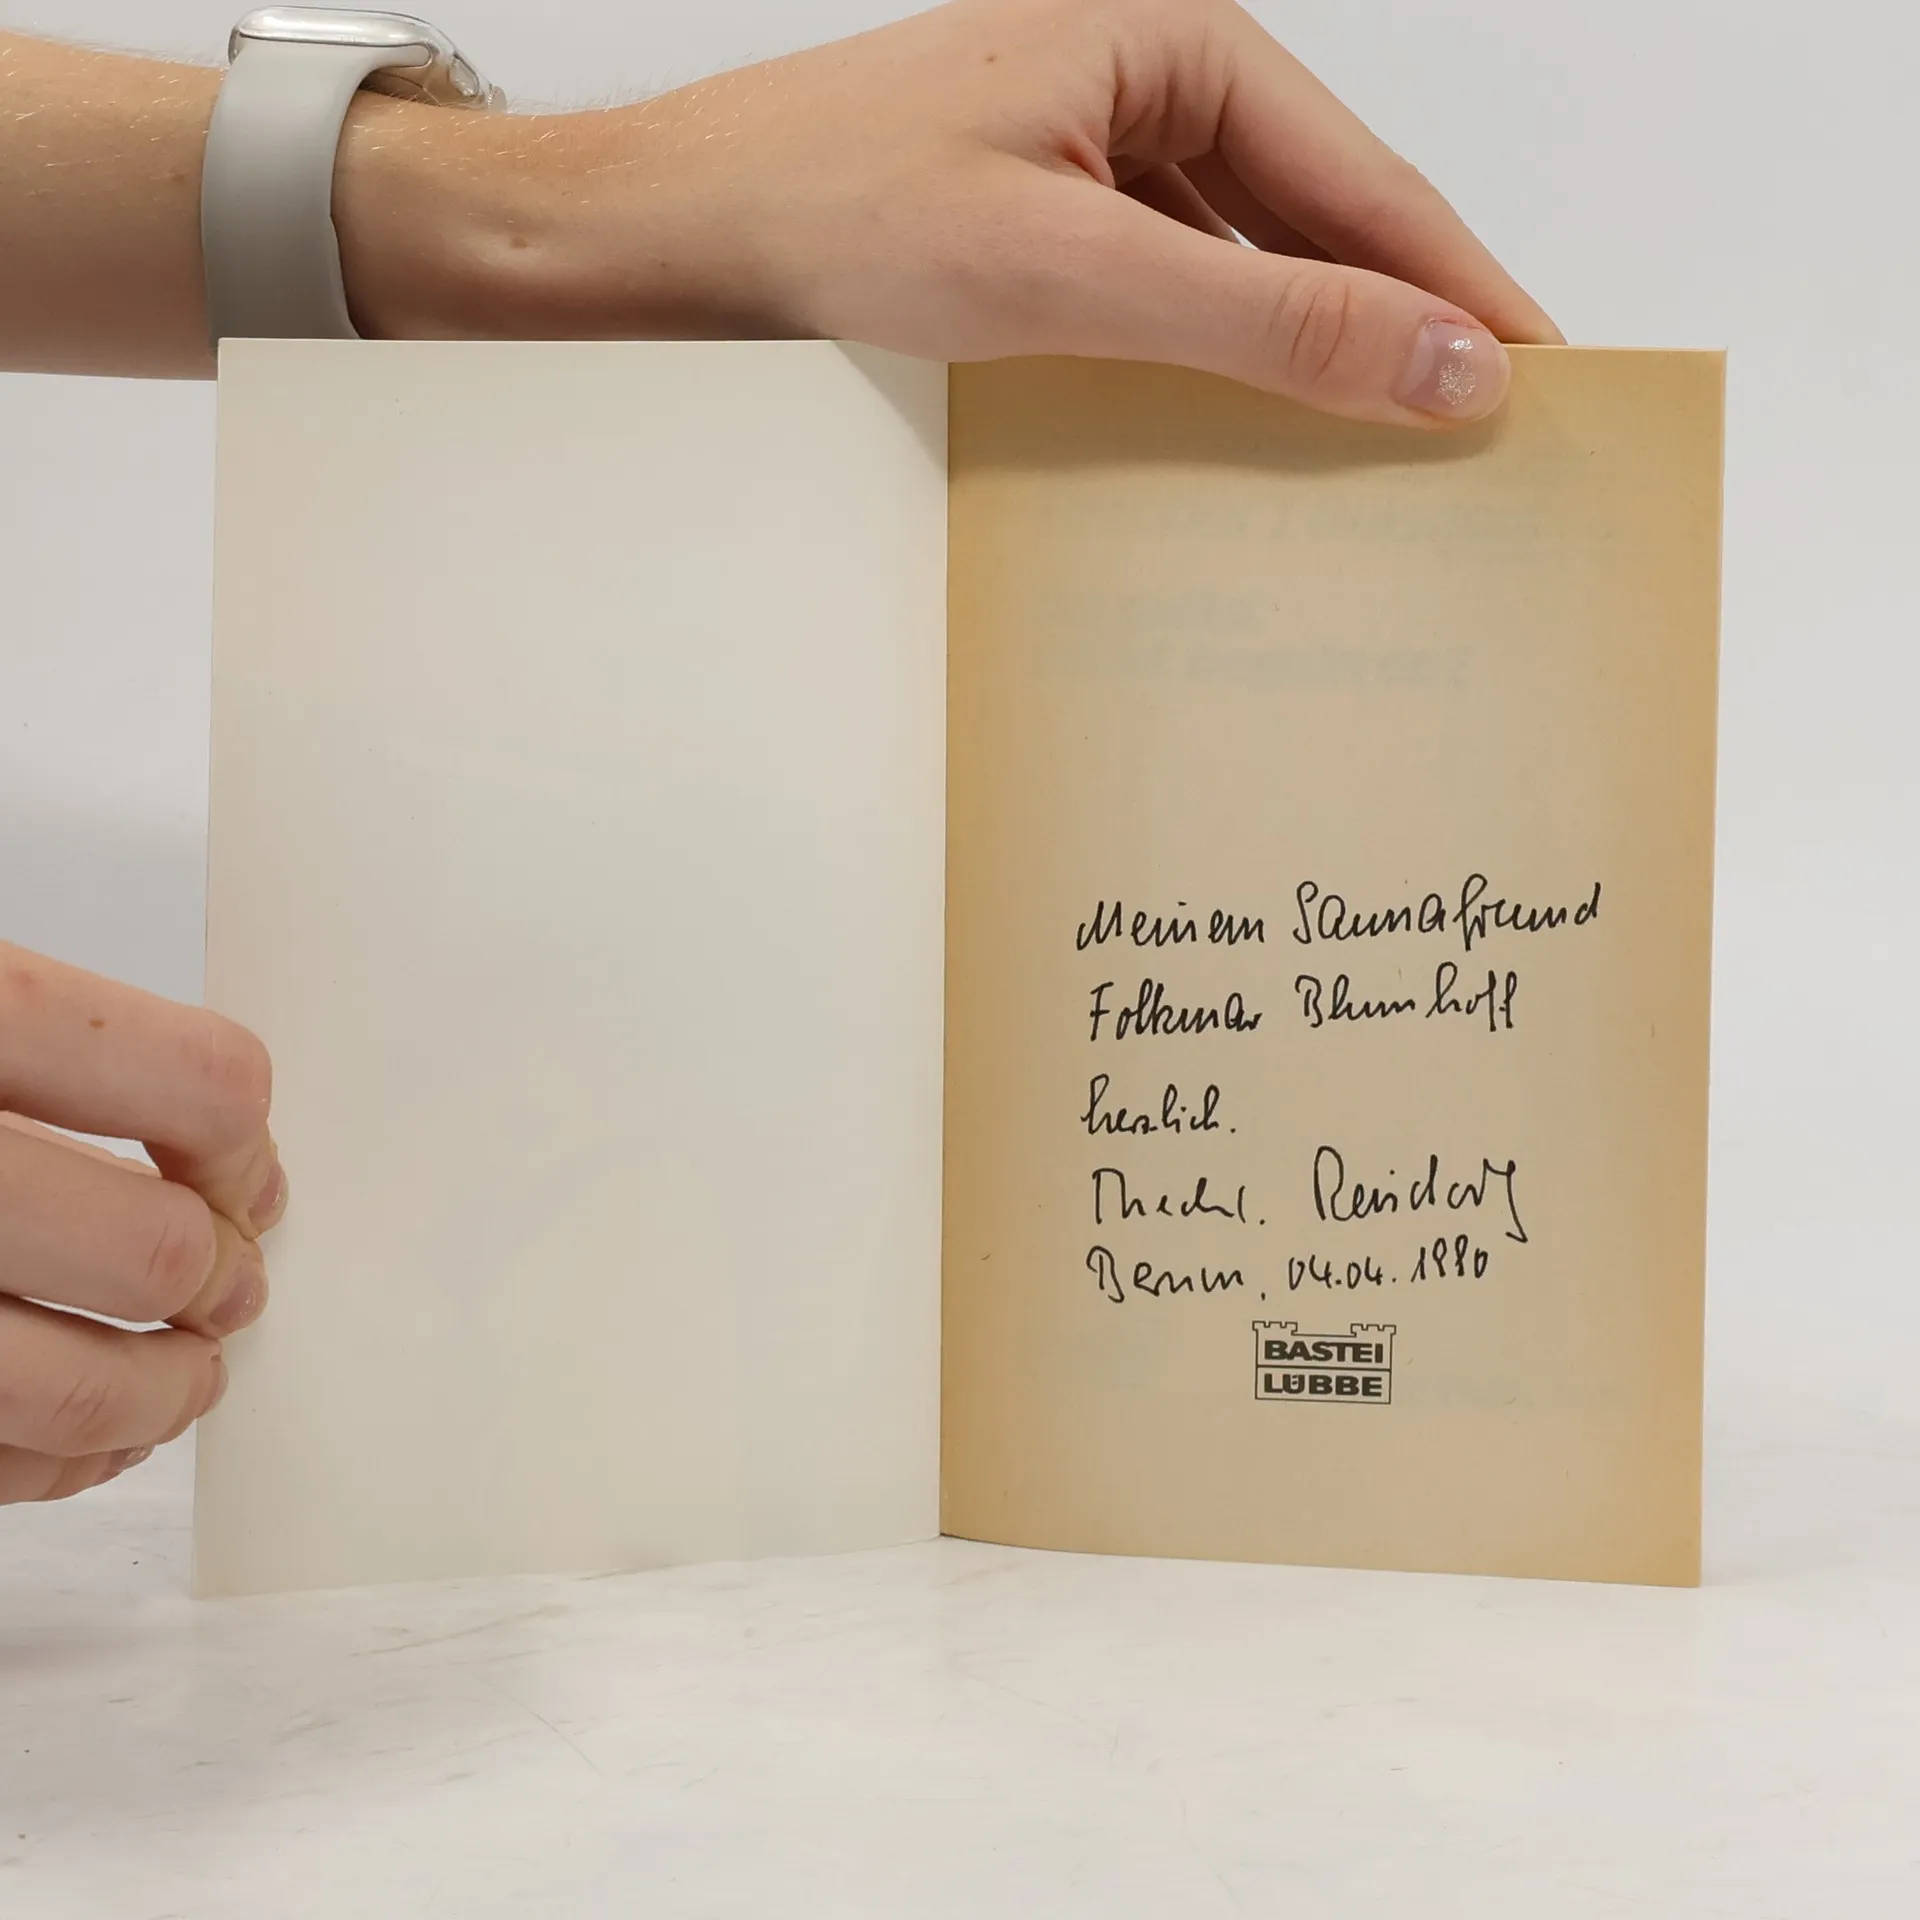 Meinem Saunafreund
Folkmar Blumhoff
herzlich.
Reindorf
04.04.1990
BASTEI
LÜBBE